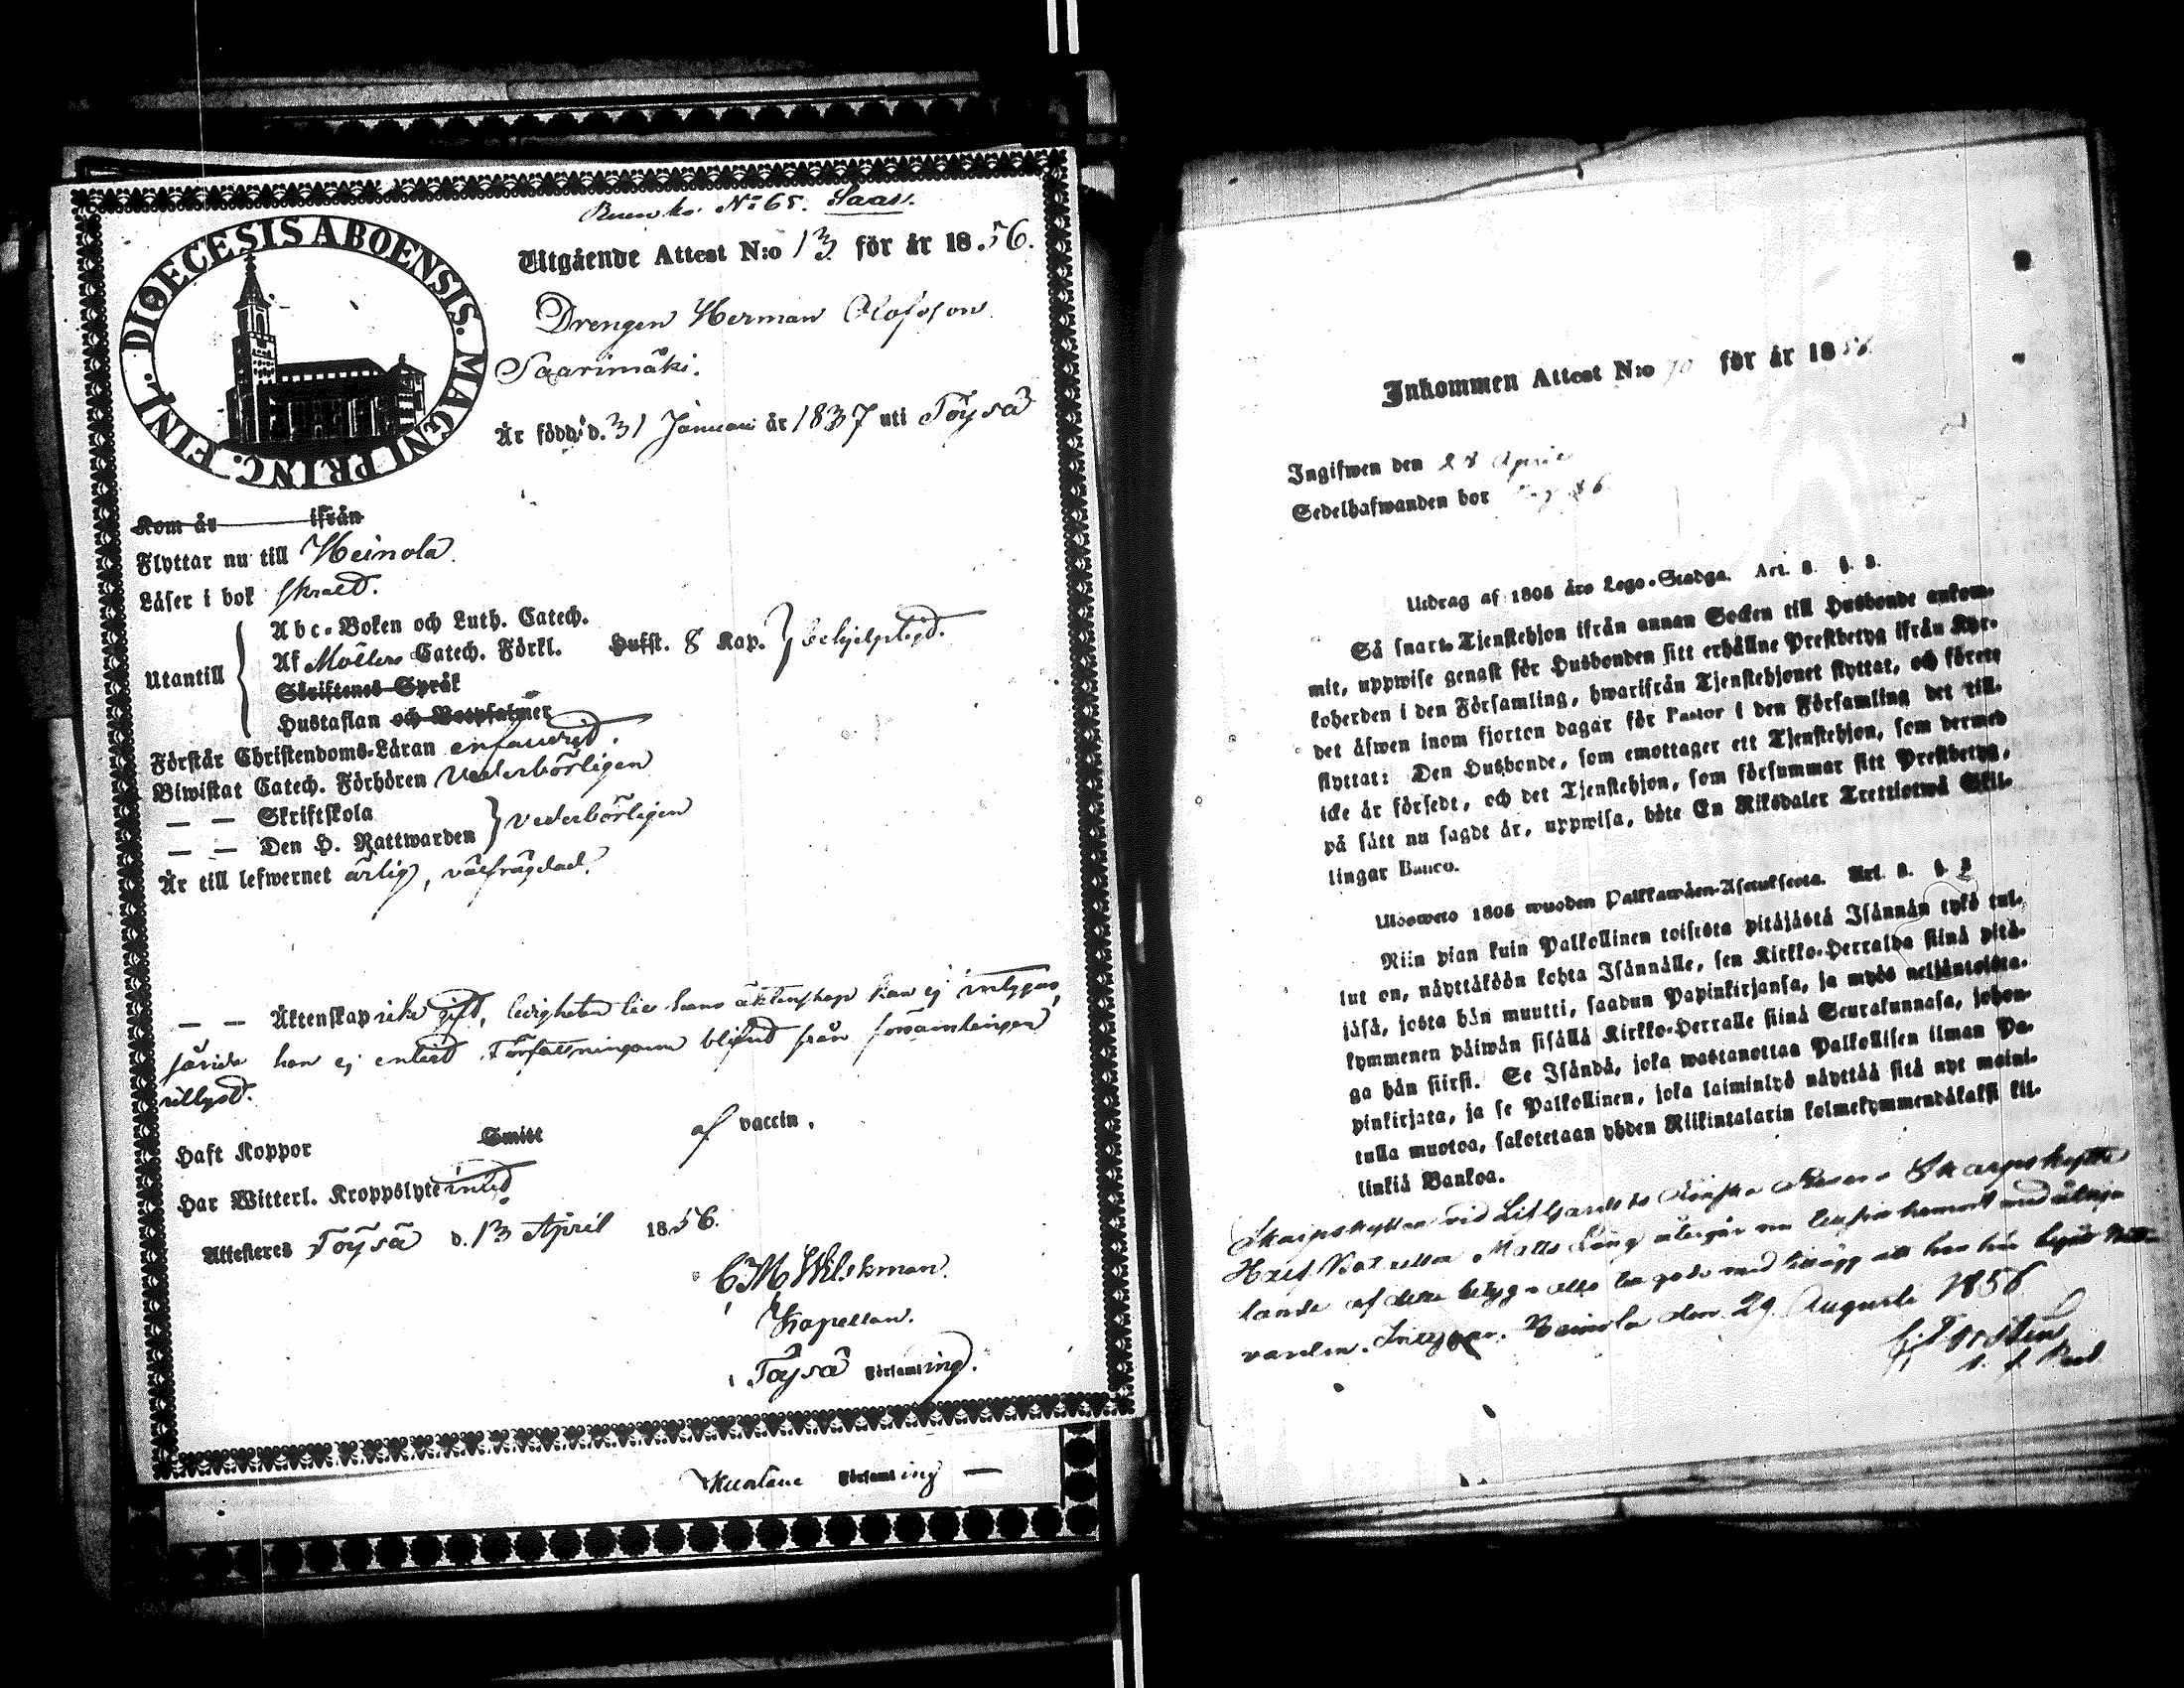 No 65. Saar.
DIOECESIS ABOENSIS. MAGNI PRINC. FINL.
Utgående Attest N:o 13 för år 1856.
Drengen Herman Olofsson
Saarimäki.
Är född d. 31 Januari år 1837 uti Töysä
Kom år ifrån
Flyttar nu till Heinola.
Läser i bok
Abc-Boken och Luth. Catech.
Utantill Af Möllers Catech. Förkl. Hufst. 8 Kap. behjelpligt.
Skriftenes Språk
Hustaflan och Botpsalmer
Förstår Christendoms-Läran enfaldigt.
Biwistat Catech. Förhören vederbörligen
— — Skriftskola
— — Den H. Nattwarden vederbörligen
Är till lefwernet ärlig, välfrägdad.
— — Äktenskap icke gift, ledigheten till hans äktenskap kan ej intygas,
han ej enligt Författningarne blifvit från församlingen
utlyst.
Haft Koppor Smitt af vaccin.
Har Witterl. Kroppslyte intet.
Attesteres Töysä d. 13 April 1856.
Kapellan.
Töysä Församling.
Församling —
Inkommen Attest N:o 70 för år 18
Ingifwen den 28 April
Sedelhafwanden bor
Utdrag af 1805 års Lego-Stadga. Art. 8. §. 3.
Så snart Tjenstehjon ifrån annan Socken till Husbonde ankom-
mit, uppwise genast för Husbonden sitt erhållne Prestbetyg ifrån Kyr-
koherden i den Församling, hwarifrån Tjenstehjonet flyttat, och förete
det äfwen inom fjorton dagar för Pastor i den Församling det till-
flyttat: Den Husbonde, som emottager ett Tjenstehjon, som dermed
icke är försedt, och det Tjenstehjon, som försummar sitt Prestbetyg,
på sätt nu sagdt är, uppwisa, böte En Riksdaler Trettiotwå Skil-
lingar Banco.
Ulosweto 1805 wuoden Palkkawäen-Asetuksesta. Art. 8. §. 3
Niin pian kuin Palkollinen toisesta pitäjästä Isännän tykö tul-
lut on, näyttäköön kohta Isännälle, sen Kirkko-Herralda siinä pitä-
jäsä, josta hän muutti, saadun Papinkirjansa, ja myös neljäntoista-
kymmenen päiwän sisällä Kirkko-Herralle siinä Seurakunnasa, johon-
ga hän siirsi. Se Isändä, joka wastanottaa Palkollisen ilman Pa-
pinkirjata, ja se Palkollinen, joka laiminlyö näyttää sitä nyt maini-
tulla muotoa, sakotetaan yhden Riikintalarin kolmekymmendäkaksi kil-
linkiä Bankoa.
Skarpskytten vid Skarpskytte
Matts Lång återgår
af
varden. Intygar. Heinola den 29 Augusti 1856